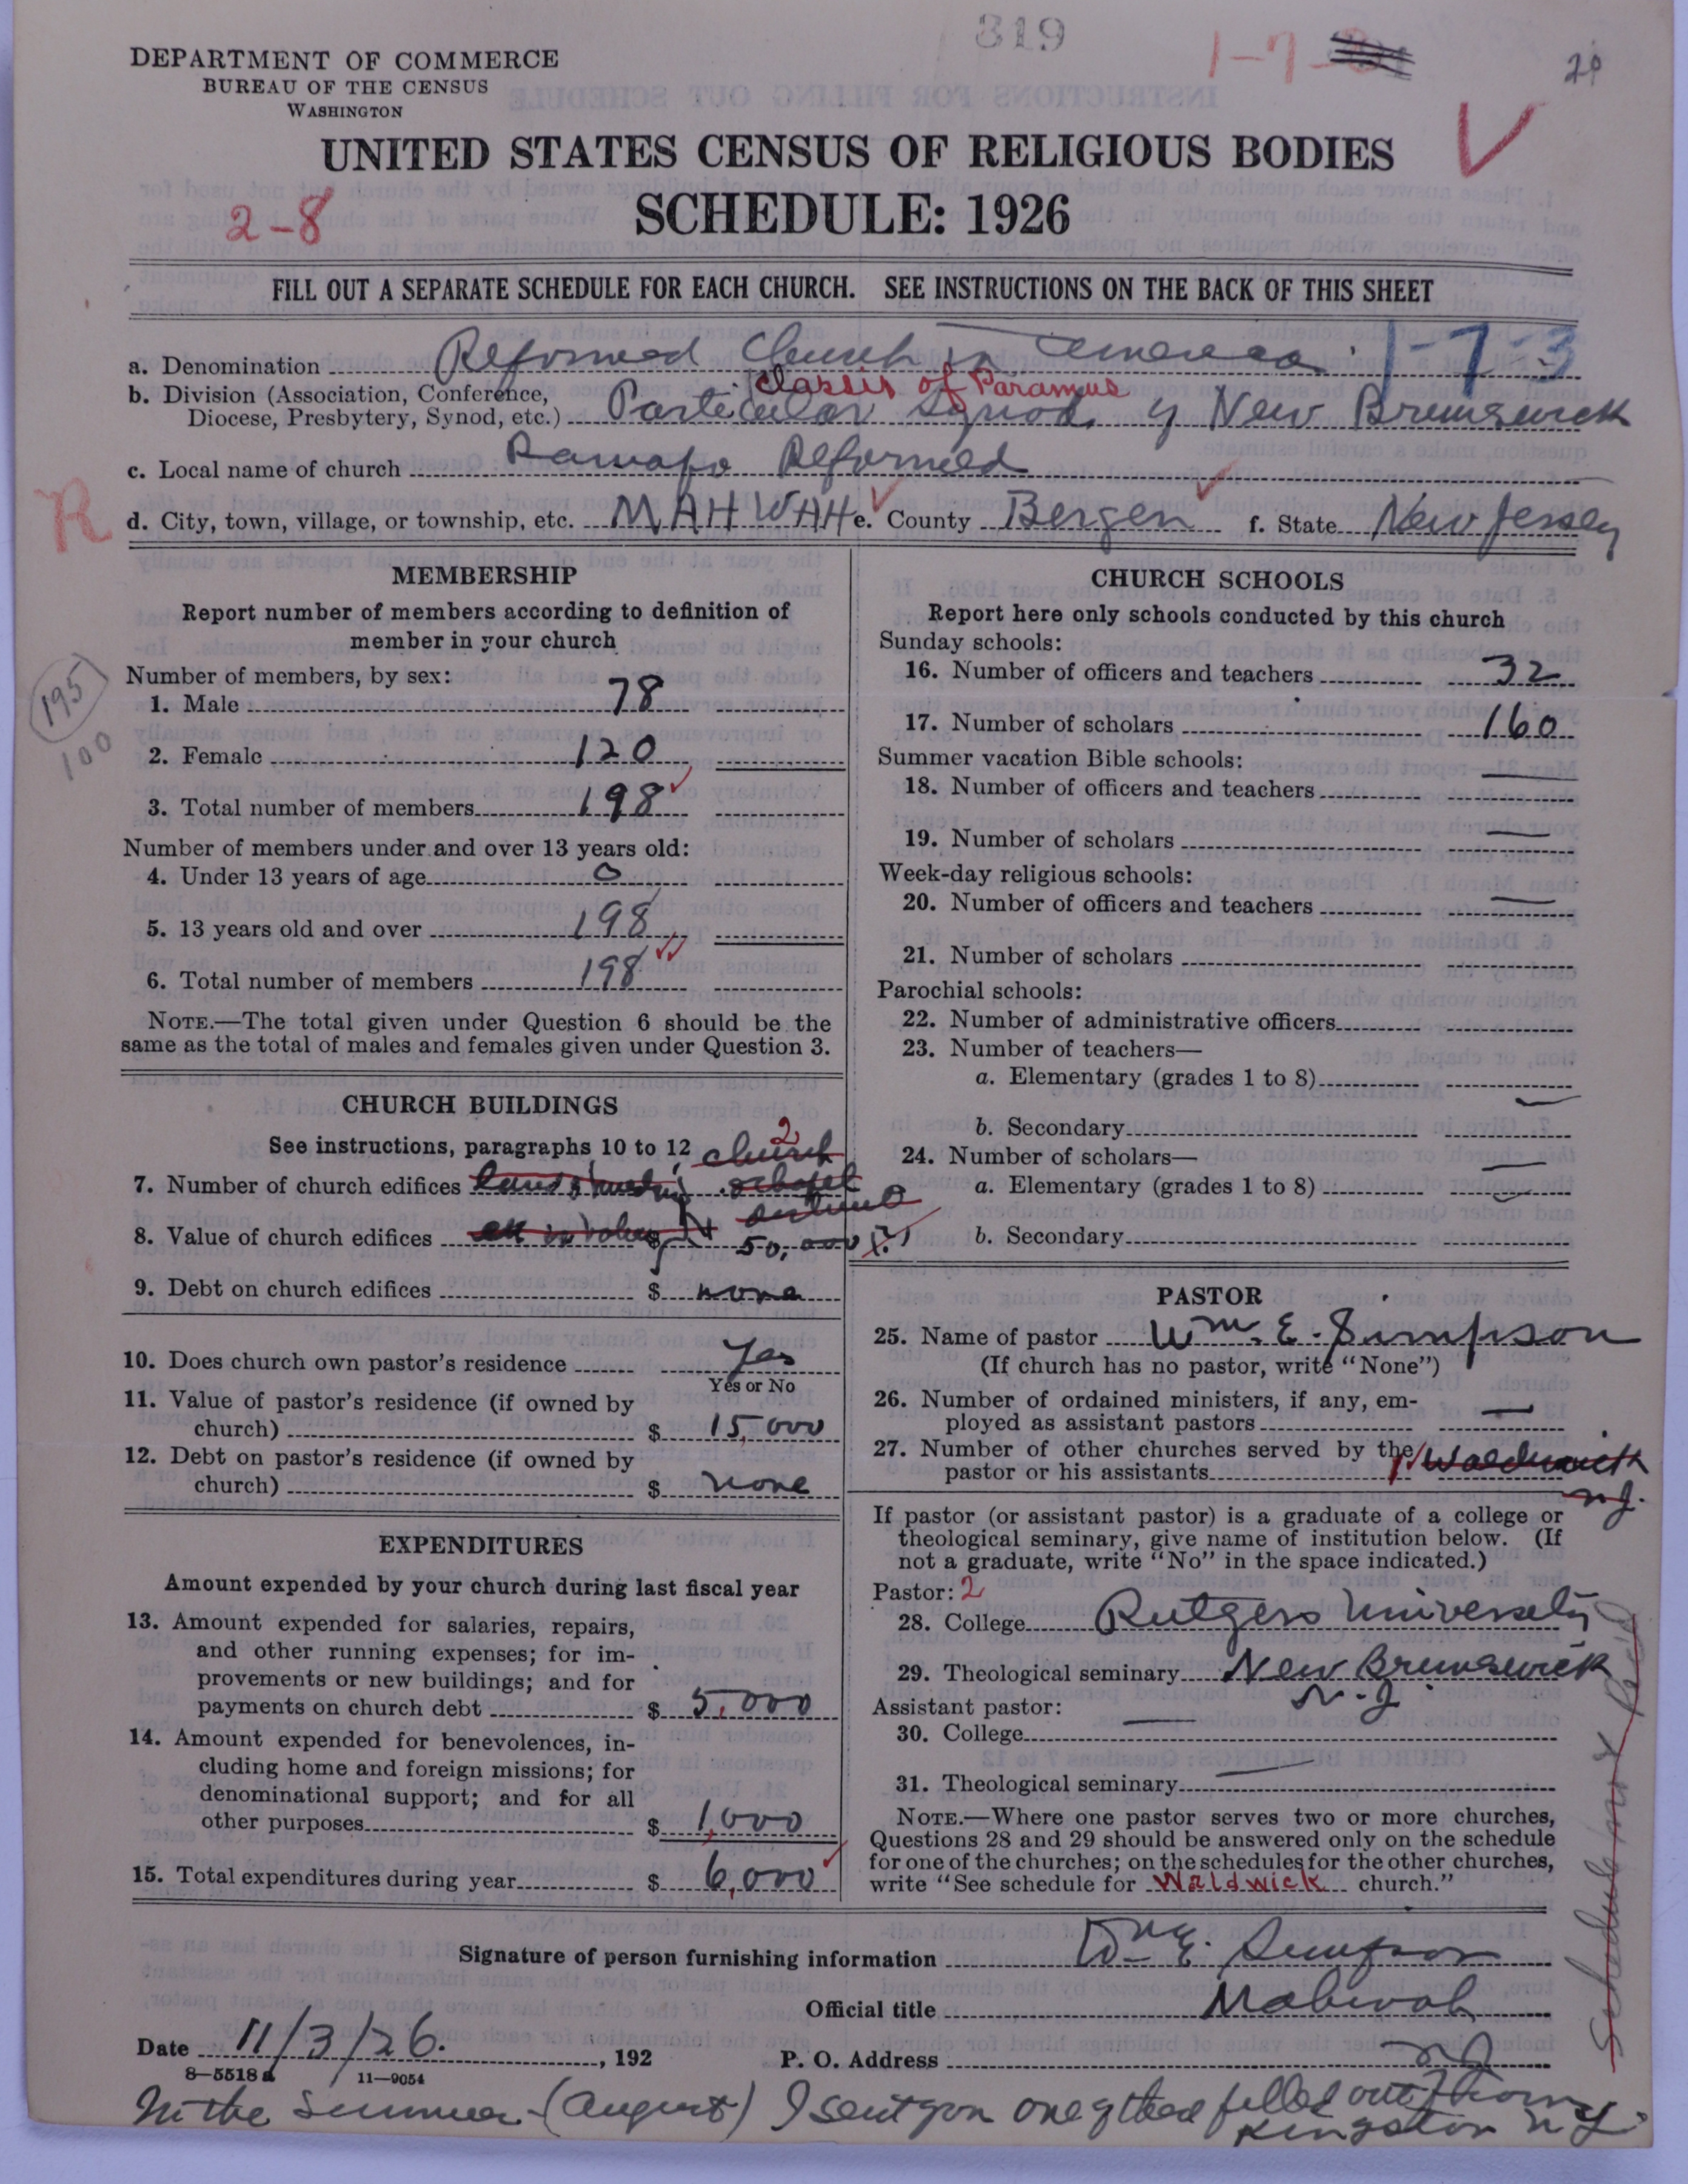 319
1-7-
29
DEPARTMENT OF COMMERCE
BUREAU OF THE CENSUS
WASHINGTON
UNITED STATES CENSUS OF RELIGIOUS BODIES
2-8
SCHEDULE: 1926
FILL OUT A SEPARATE SCHEDULE FOR EACH CHURCH. SEE INSTRUCTIONS ON THE BACK OF THIS SHEET
a. Denomination Reformed Church in America 1-7-3
Classis of Paramus
b. Division (Association, Conference,
Diocese, Presbytery, Synod, etc.) Particular Synod of New Brunswick
c. Local name of church Ramapo Reformed
R
d. City, town, village, or township, etc. MAHWAH e. County Bergen f. State New Jersey
MEMBERSHIP
Report number of members according to definition of
member in your church
Number of members, by sex:
195
100
1. Male 78
2. Female 120
3. Total number of members 198
Number of members under and over 13 years old:
4. Under 13 years of age 0
5. 13 years old and over 198
6. Total number of members 198
NOTE.—The total given under Question 6 should be the
same as the total of males and females given under Question 3.
CHURCH BUILDINGS
See instructions, paragraphs 10 to 12 church 2
7. Number of church edifices
8. Value of church edifices $ 50,000 (?)
9. Debt on church edifices $ none
10. Does church own pastor's residence Yes
Yes or No
11. Value of pastor's residence (if owned by
church) $ 15,000
12. Debt on pastor's residence (if owned by
church) $ none
EXPENDITURES
Amount expended by your church during last fiscal year
13. Amount expended for salaries, repairs,
and other running expenses; for im-
provements or new buildings; and for
payments on church debt $ 5,000
14. Amount expended for benevolences, in-
cluding home and foreign missions; for
denominational support; and for all
other purposes $ 1,000
15. Total expenditures during year $ 6,000
CHURCH SCHOOLS
Report here only schools conducted by this church
Sunday schools:
16. Number of officers and teachers 32
17. Number of scholars 160
Summer vacation Bible schools:
18. Number of officers and teachers —
19. Number of scholars —
Week-day religious schools:
20. Number of officers and teachers —
21. Number of scholars
Parochial schools:
22. Number of administrative officers
23. Number of teachers—
a. Elementary (grades 1 to 8)
b. Secondary
24. Number of scholars—
a. Elementary (grades 1 to 8)
b. Secondary
PASTOR
25. Name of pastor Wm. E. Simpson
(If church has no pastor, write "None")
26. Number of ordained ministers, if any, em-
ployed as assistant pastors —
27. Number of other churches served by the
pastor or his assistants 1 Waldwick
N.J.
If pastor (or assistant pastor) is a graduate of a college or
theological seminary, give name of institution below. (If
not a graduate, write "No" in the space indicated.)
Pastor: 2
28. College Rutgers University
29. Theological seminary New Brunswick
N.J
Assistant pastor:
30. College —
31. Theological seminary —
NOTE.—Where one pastor serves two or more churches,
Questions 28 and 29 should be answered only on the schedule
for one of the churches; on the schedules for the other churches,
write "See schedule for Waldwick church."
Schedule not
Signature of person furnishing information Wm E. Simpson
Official title Mahwah
Date 11/3/26. , 192
P. O. Address N J
8-5518 a 11-9054
In the summer (August) I sent you one of these filled out from
Kingston N Y.